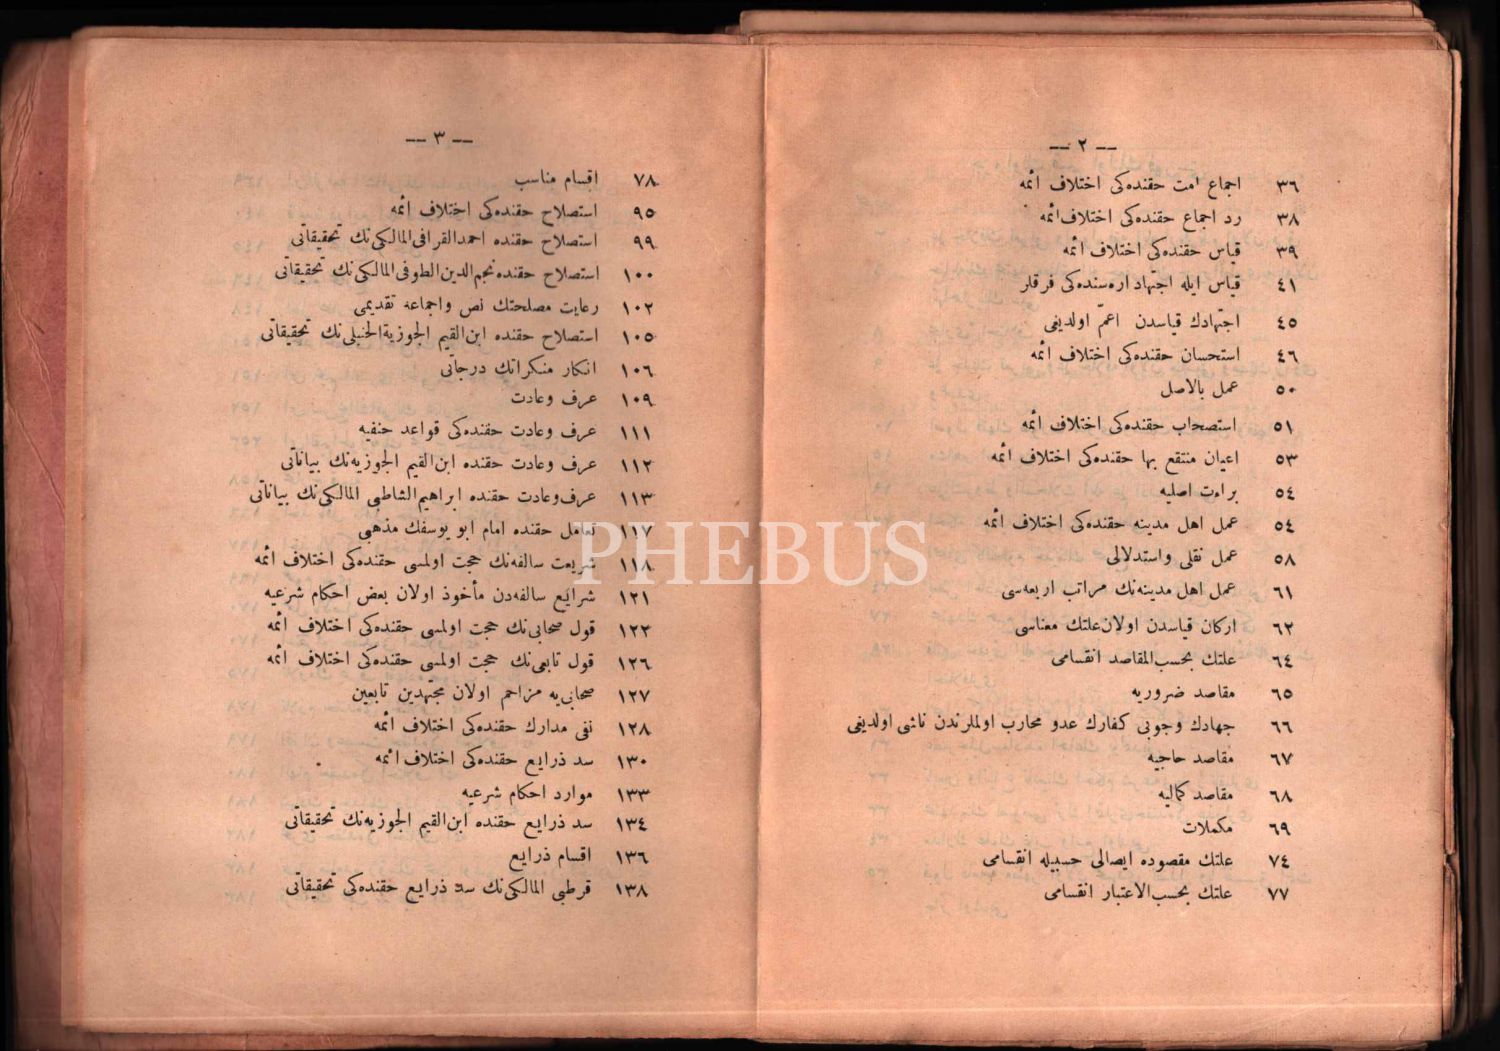 — ٢ —
٣٦ اجماع امت حقنده‌كی اختلاف ائمه
٣٨ رد اجماع حقنده‌كی اختلاف ائمه
٣٩ قیاس حقنده‌كی اختلاف ائمه
٤١ قیاس ایله اجتهاد اره‌سنده‌كی فرقلر
٤٥ اجتهادك قیاسدن اعمّ اولدیغی
٤٦ استحسان حقنده‌كی اختلاف ائمه
٥٠ عمل بالاصل
٥١ استصحاب حقنده‌كی اختلاف ائمه
٥٣ اعیان منتفع بها حقنده‌كی اختلاف ائمه
٥٤ براءت اصلیه
٥٤ عمل اهل مدینه حقنده‌كی اختلاف ائمه
٥٨ عمل نقلی واستدلالی
٦١ عمل اهل مدینه‌نك مراتب اربعه‌سی
٦٢ اركان قیاسدن اولان علتك معناسی
٦٤ علتك بحسب المقاصد انقسامی
٦٥ مقاصد ضروریه
٦٦ جهادك وجوبی كفارك عدو محارب اولملرندن ناشی اولدیغی
٦٧ مقاصد حاجیه
٦٨ مقاصد كمالیه
٦٩ مكملات
٧٤ علتك مقصوده ایصالی حسبیله انقسامی
٧٧ علتك بحسب الاعتبار انقسامی
— ٣ —
٧٨ اقسام مناسب
٩٥ استصلاح حقنده‌كی اختلاف ائمه
٩٩ استصلاح حقنده احمد القرافی المالكی‌نك تحقیقاتی
١٠٠ استصلاح حقنده نجم الدین الطوفی المالكی‌نك تحقیقاتی
١٠٢ رعایت مصلحتك نص واجماعه تقدیمی
١٠٥ استصلاح حقنده ابن القیم الجوزیة الحنبلی‌نك تحقیقاتی
١٠٦ انكار منكراتك درجاتی
١٠٩ عرف وعادت
١١١ عرف وعادت حقنده‌كی قواعد حنفیه
١١٢ عرف وعادت حقنده ابن القیم الجوزیه‌نك بیاناتی
١١٣ عرف وعادت حقنده ابراهیم الشاطبی المالكی‌نك بیاناتی
١١٧ تعامل حقنده امام ابو یوسفك مذهبی
١١٨ شریعت سالفه‌نك حجت اولمسی حقنده‌كی اختلاف ائمه
١٢١ شرایع سالفه‌دن مأخوذ اولان بعض احكام شرعیه
١٢٢ قول صحابی‌نك حجت اولمسی حقنده‌كی اختلاف ائمه
١٢٦ قول تابعی‌نك حجت اولمسی حقنده‌كی اختلاف ائمه
١٢٧ صحابی‌یه مزاحم اولان مجتهدین تابعین
١٢٨ نفی مدارك حقنده‌كی اختلاف ائمه
١٣٠ سد ذرایع حقنده‌كی اختلاف ائمه
١٣٣ موارد احكام شرعیه
١٣٤ سد ذرایع حقنده ابن القیم الجوزیه‌نك تحقیقاتی
١٣٦ اقسام ذرایع
١٣٨ قرطبی المالكی‌نك سد ذرایع حقنده‌كی تحقیقاتی
PHEBUS